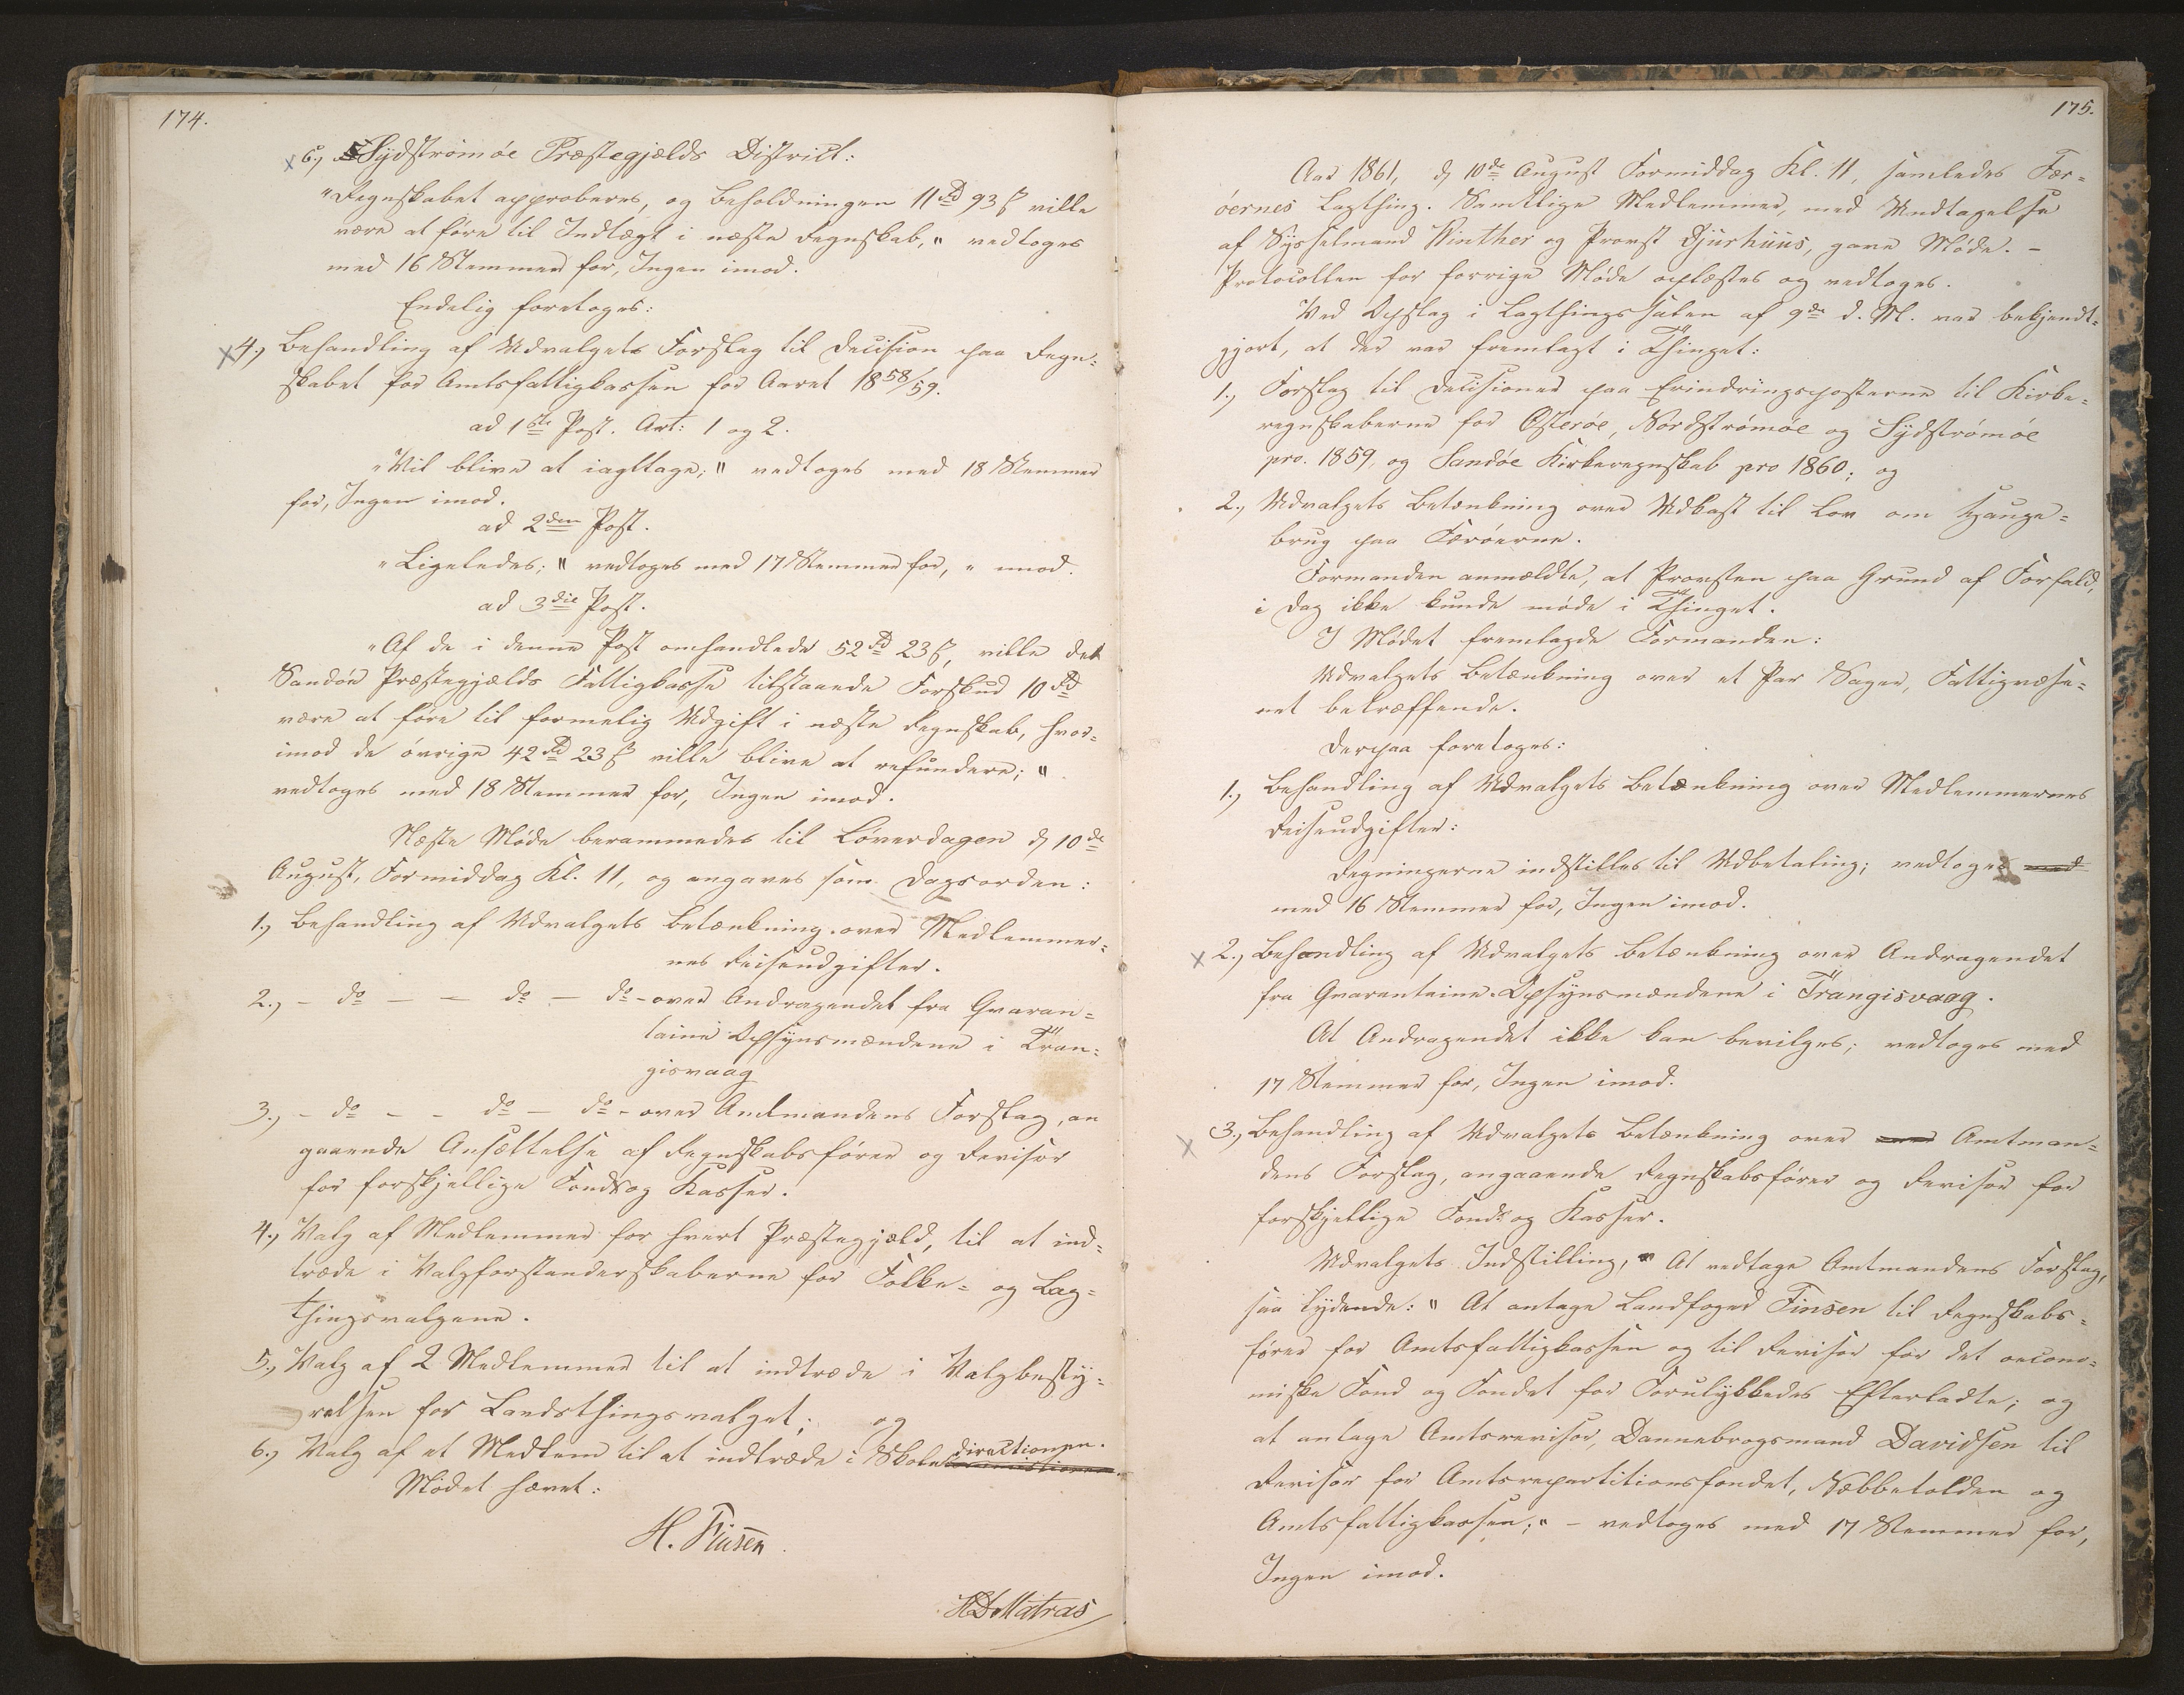 174.
6., Sydstrømøe Præstegjælds District:
"Regnskabet approberes, og Beholdningen 11 Rd 93 ß ville
være at føre til Indtægt i næste Regnskab," vedtoges
med 16 Stemmer for, Ingen imod.
Endelig foretoges:
4., Behandling af Udvalgets Forslag til Decision paa Regn=
skabet for Amtsfattigkassen for Aaret 1858/59.
ad 1ste Post. Art: 1 og 2.
"Vil blive at iagttage;" vedtoges med 18 Stemmer
for, Ingen imod.
ad 2den Post.
"Ligeledes;" vedtoges med 17 Stemmer for, " imod.
ad 3die Post.
"Af de i denne Post omhandlede 52 Rd 23 ß, ville det
Sandøe Præstegjælds Fattigkasse tilstaaede Forskud 10 Rd
være at føre til formelig Udgift i næste Regnskab, hvor=
imod de øvrige 42 Rd 23 ß ville blive at refundere;"
vedtoges med 18 Stemmer for, Ingen imod.
Næste Møde berammedes til Løverdagen d 10de
August, Formiddag Kl. 11, og angaves som Dagsorden:
1., Behandling af Udvalgets Betænkning over Medlemmer=
nes Reiseudgifter.
2., - do - - do - do - over Andragendet fra Qvaran=
taine Opsynsmændene i Tran=
gisvaag
3., - do - - do - do - over Amtmandens Forslag, an
gaaende Ansættelse af Regnskabsfører og Revisor
for forskjellige Fonds og Kasser.
4., Valg af Medlemmer for hvert Præstegjæld, til at ind=
træde i Valgforstanderskaberne for Folke= og Lag=
thingsvalgene.
5., Valg af 2 Medlemmer til at indtræde i Valgbesty=
relsen for Landsthingsvalget; og
6., Valg af et Medlem til at indtræde i Skoledirectionen.
Mødet hævet:
H. Finsen
HDMatras
175.
Aar 1861, d 10de August Formiddag Kl. 11, samledes Fær=
øernes Lagthing. Samtlige Medlemmer, med Undtagelse
af Sysselmand Winther og Provst Djurhuus, gave Møde. -
Protocollen for forrige Møde oplæstes og vedtoges.
Ved Opslag i Lagthingssalen af 9de d. M. var bekjendt=
gjort, at der var fremlagt i Thinget:
1., Forslag til Decisioner paa Erindringsposterne til Kirke=
regnskaberne for Østerøe, Nordstrømøe og Sydstrømøe
pro. 1859, og Sandøe Kirkeregnskab pro 1860; og
2., Udvalgets Betænkning over Udkast til Lov om Hauge=
brug paa Færøerne.
Formanden anmeldte, at Provsten paa Grund af Forfald,
i Dag ikke kunde møde i Thinget.
I Mødet fremlagde Formanden:
Udvalgets Betænkning over et Par Sager, Fattigvæse=
net betræffende.
Derpaa foretoges:
1., Behandling af Udvalgets Betænkning over Medlemmernes
Reiseudgifter:
Regningerne indstilles til Udbetaling; vedtoges med
med 16 Stemmer for, Ingen imod.
2., Behandling af Udvalgets Betænkning over Andragendet
fra Qvarantaine-Opsynsmændene i Trangisvaag.
At Andragendet ikke kan bevilges; vedtoges med
17 Stemmer for, Ingen imod.
3., Behandling af Udvalgets Betænkning over Amtman=
dens Forslag, angaaende Regnskabsfører og Revisor for
forskjellige Fonds og Kasser.
Udvalgets Indstilling, " At vedtage Amtmandens Forslag,
saa lydende: " At antage Landfoged Finsen til Regnskabs=
fører for Amtsfattigkassen og til Revisor for det oecono=
miske Fond og Fondet for Forulykkedes Efterladte; og
at antage Amtsrevisor, Dannebrogsmand Davidsen til
Revisor for Amtsrepartitionsfondet, Næbbetolden og
Amtsfattigkassen;" - vedtoges med 17 Stemmer for,
Ingen imod.